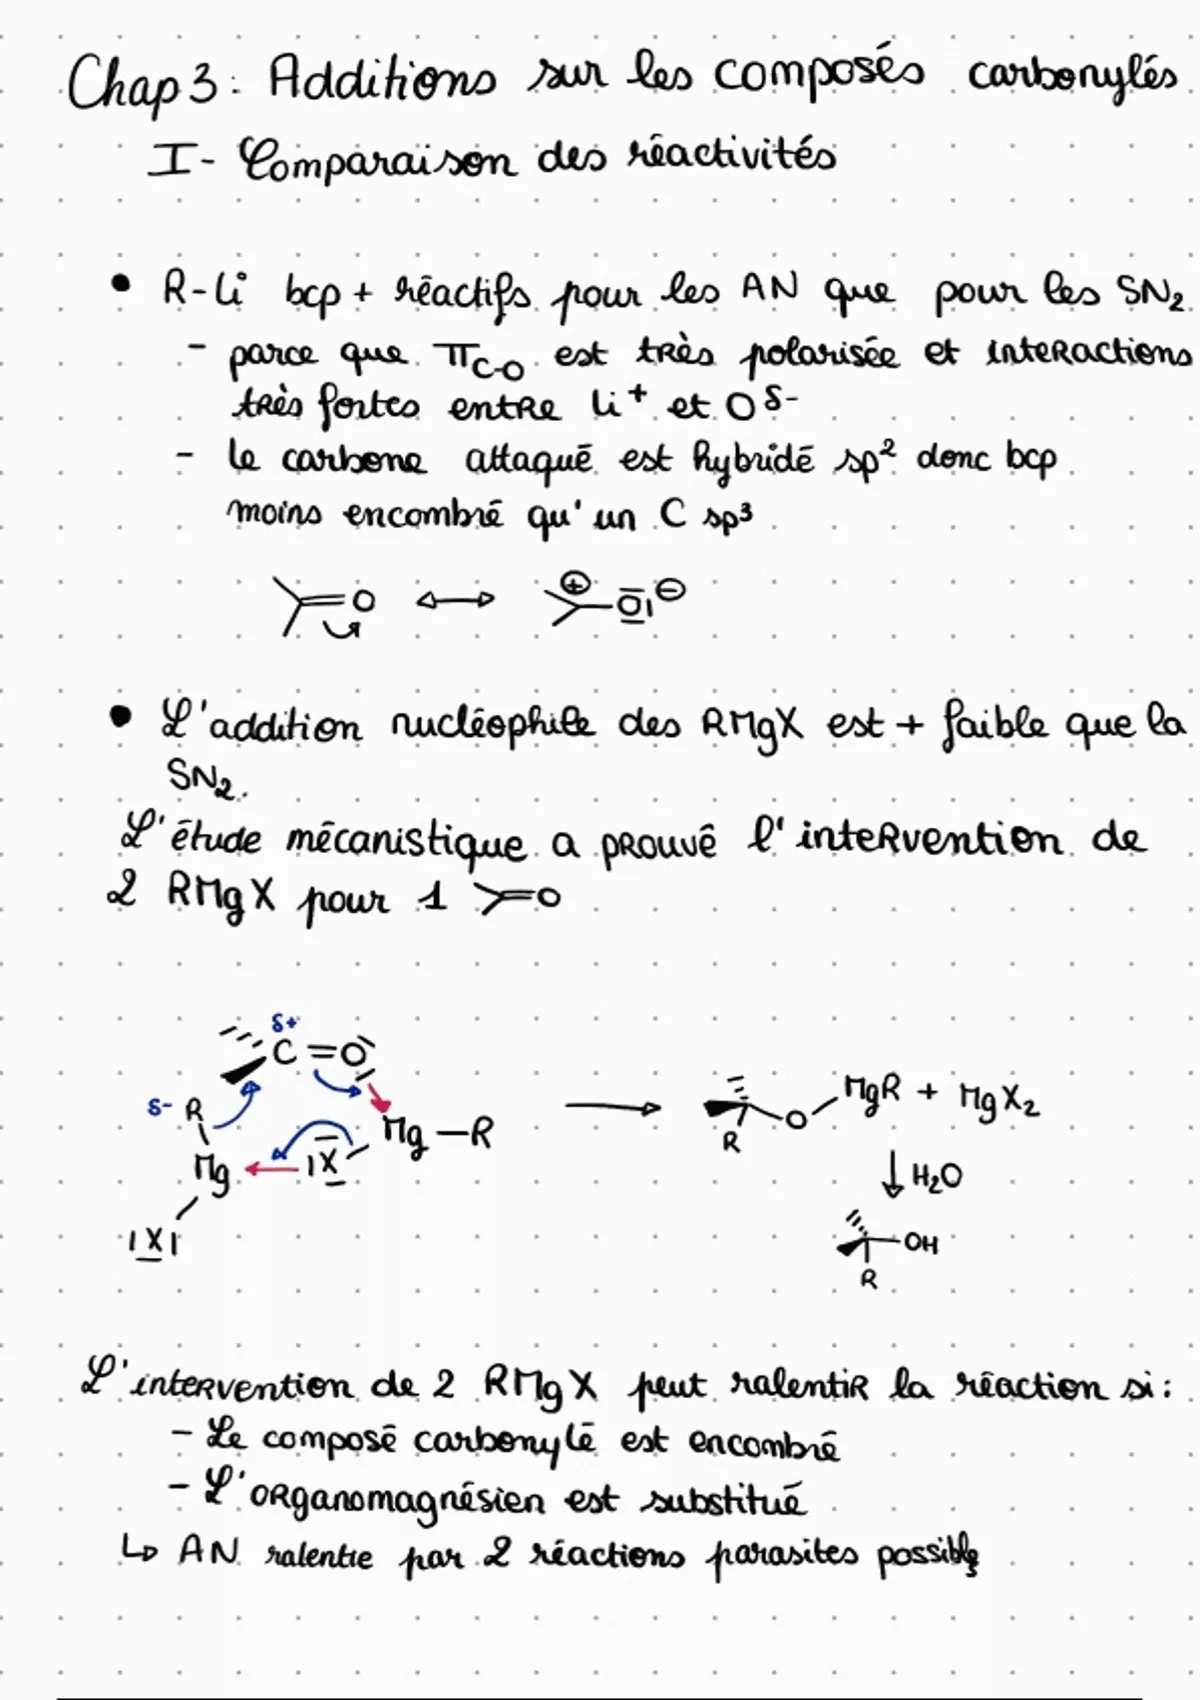 Chap 3 : Additions sur les composés carbonylés
I- Comparaison des réactivités
• R-Li bcp + réactifs pour les AN que pour les SN₂
- parce que π_C-O est très polarisée et interactions
très fortes entre Li⁺ et O^δ-
- le carbone attaqué est hybridé sp² donc bcp
moins encombré qu'un C sp³
=O ↔ ⊕ -O ⊖
• L'addition nucléophile des RMgX est + faible que la
SN₂.
L'étude mécanistique a prouvé l'intervention de
2 RMgX pour 1 =O
δ+
C=O
δ- R
Mg-R
Mg
|X
|X|
R
O
MgR + MgX₂
↓ H₂O
OH
R
L'intervention de 2 RMgX peut ralentir la réaction si :
- Le composé carbonylé est encombré
- L'organomagnésien est substitué
↳ AN ralentie par 2 réactions parasites possibles